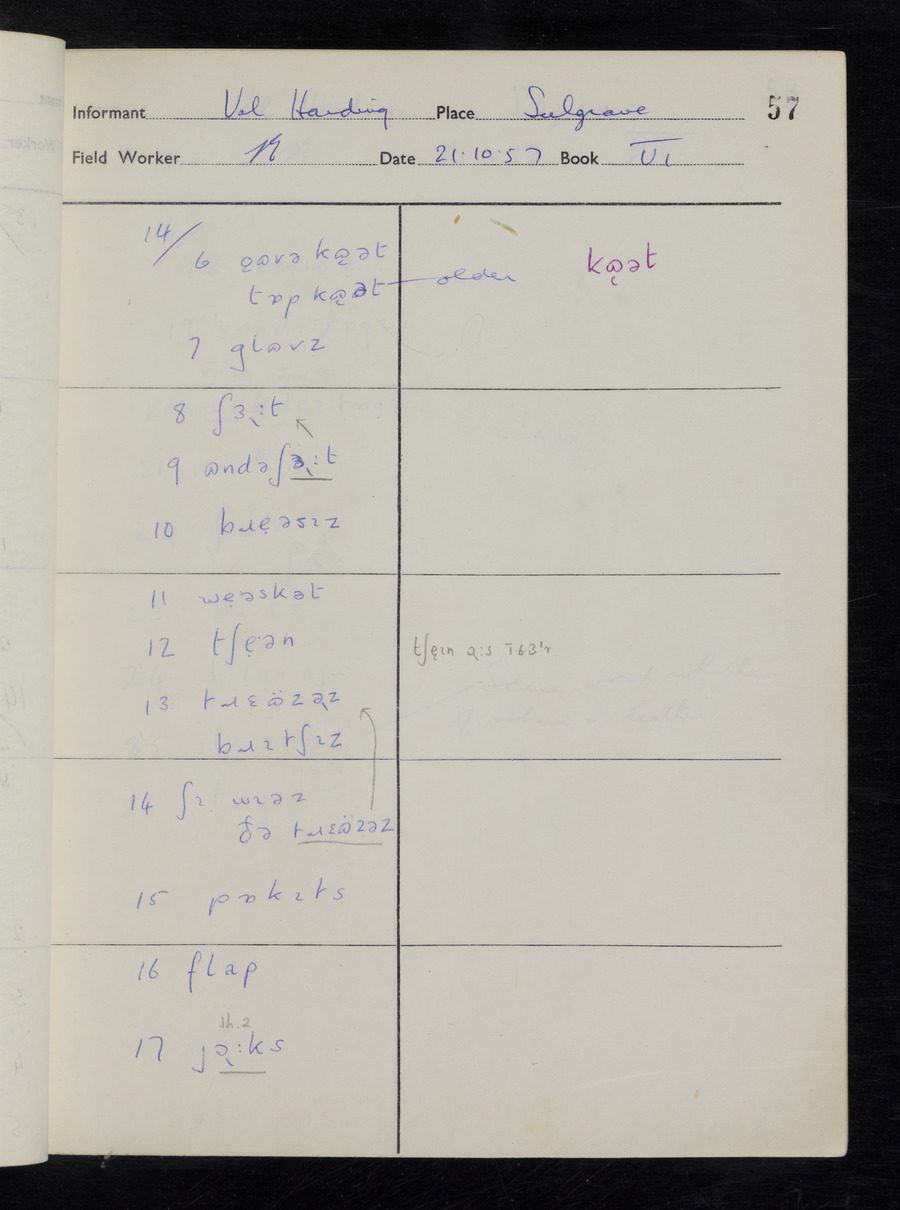 Informant Val Harding Place Sulgrave 57
Field Worker Date 21·10·57 Book VI
14/
6 ọɷvə kɷ̜ət
tɒp kɷ̜ət — older kɷ̜ət
7 glɷvz
8 ʃɜ˞:t
9 ɷndəʃə˞:t
10 bɹẹəsɪz
11 wẹəskət
12 tʃẹ·ən tʃẹɪn
13 tɹɛɷ̈zə˞z
bɹɪtʃɪz
14 ʃɪ wɪəz
ðə tɹɛɷ̈zəz
15 pɒkɪts
16 flap
sh.2
17 jə˞:ks